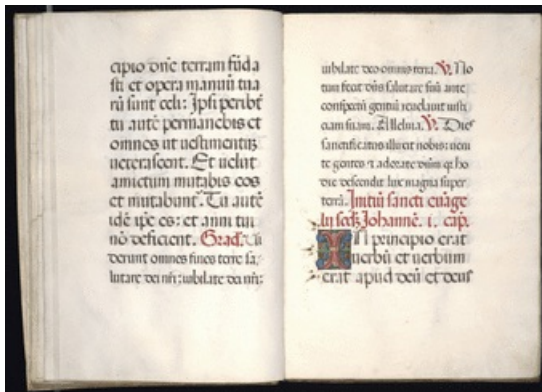 cipio dñe terram fũda
sti et opera manuũ tua
rũ sunt celi: Ipsi peribt̃
tu autẽ permanebis et
omnes ut uestimentũ
ueterascent. Et uelut
amictum mutabis eos
et mutabunt̃. Tu autẽ
idẽ ip̃e es: et anni tui
nõ deficient. Grad̃. Ui
derunt omnes fines terre sa
lutare dei ñri: iubilate deo
iubilate deo omnis terra. ℣. No
tum fecit dñs salutare suũ ante
conspectũ gentiũ reuelauit iusti
ciam suam. Alleluia. ℣. Dies
sanctificatus illuxit nobis: ueni
te gentes ⁊ adorate dñm q̃ ho
die descendit lux magna super
terrã. Initiũ sancti euãge
lii scd̃ꝫ Johannẽ. i. cap̃.
IN principio erat
uerbũ et uerbum
erat apud deũ et deus